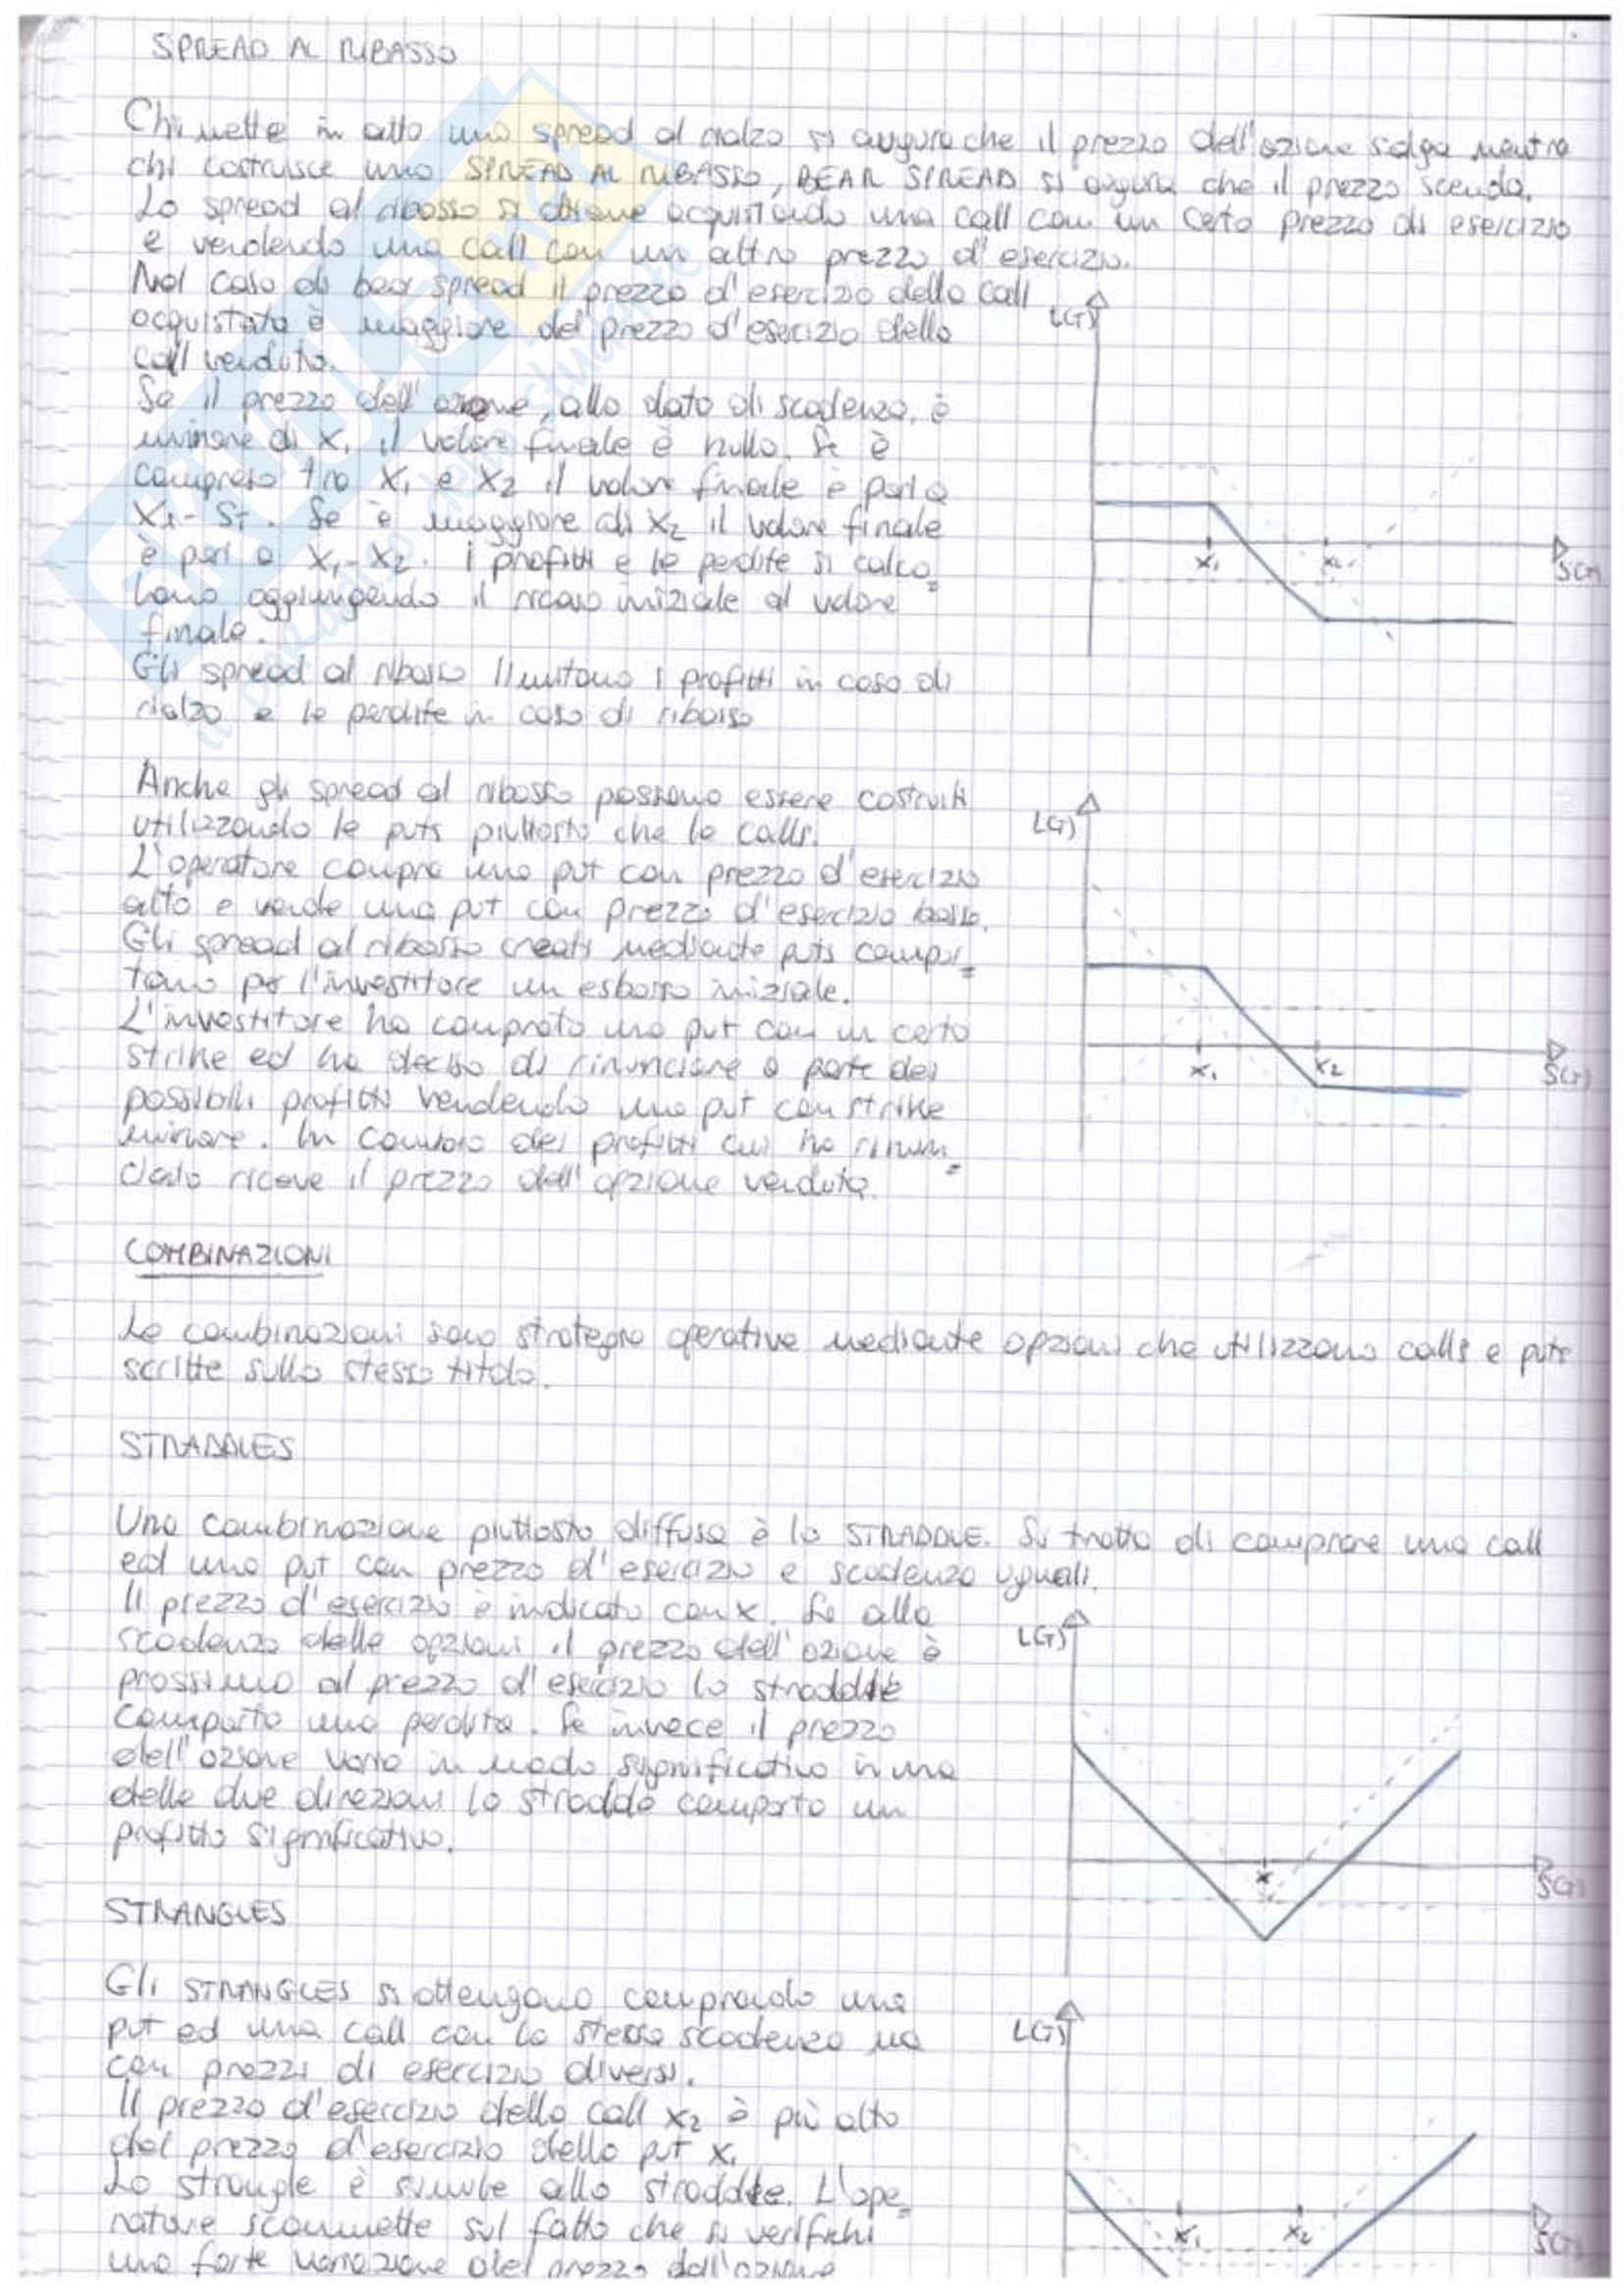 SPREAD AL RIBASSO
Chi mette in atto uno spread al rialzo si augura che il prezzo dell'azione salga mentre
chi costruisce uno SPREAD AL RIBASSO, BEAR SPREAD si augura che il prezzo scenda.
Lo spread al ribasso si ottiene acquistando una call con un certo prezzo di esercizio
e vendendo una call con un altro prezzo d'esercizio.
Nel caso di bear spread il prezzo d'esercizio della call
acquistata è maggiore del prezzo d'esercizio della
call venduta.
Se il prezzo dell'azione, alla data di scadenza, è
minore di X₁ il valore finale è nullo. Se è
compreso tra X₁ e X₂ il valore finale è pari a
X₁-S_T. Se è maggiore di X₂ il valore finale
è pari a X₁-X₂. I profitti e le perdite si calco=
lano aggiungendo il incasso iniziale al valore
finale.
Gli spread al ribasso limitano i profitti in caso di
rialzo e le perdite in caso di ribasso
L(T)
X₁
X₂
S(T)
Anche gli spread al ribasso possono essere costruiti
utilizzando le puts piuttosto che le calls.
L'operatore compra una put con prezzo d'esercizio
alto e vende una put con prezzo d'esercizio basso.
Gli spread al ribasso creati mediante puts compor=
tano per l'investitore un esborso iniziale.
L'investitore ha comprato una put con un certo
strike ed ha deciso di rinunciare a parte dei
possibili profitti vendendo una put con strike
minore. In cambio dei profitti cui ha rinun=
ciato riceve il prezzo dell'opzione venduta.
L(T)
X₁
X₂
S(T)
COMBINAZIONI
Le combinazioni sono strategie operative mediante opzioni che utilizzano calls e puts
scritte sullo stesso titolo.
STRADDLES
Una combinazione piuttosto diffusa è lo STRADDLE. Si tratta di comprare una call
ed una put con prezzo d'esercizio e scadenza uguali.
Il prezzo d'esercizio è indicato con X. Se alla
scadenza delle opzioni il prezzo dell'azione è
prossimo al prezzo d'esercizio lo straddle
comporta una perdita. Se invece il prezzo
dell'azione varia in modo significativo in una
delle due direzioni lo straddle comporta un
profitto significativo.
L(T)
X
S(T)
STRANGLES
Gli STRANGLES si ottengono comprando una
put ed una call con la stessa scadenza ma
con prezzi di esercizio diversi.
Il prezzo d'esercizio della call X₂ è più alto
del prezzo d'esercizio della put X₁
Lo strangle è simile allo straddle. L'ope=
ratore scommette sul fatto che si verifichi
una forte variazione del prezzo dell'azione
L(T)
X₁
X₂
S(T)